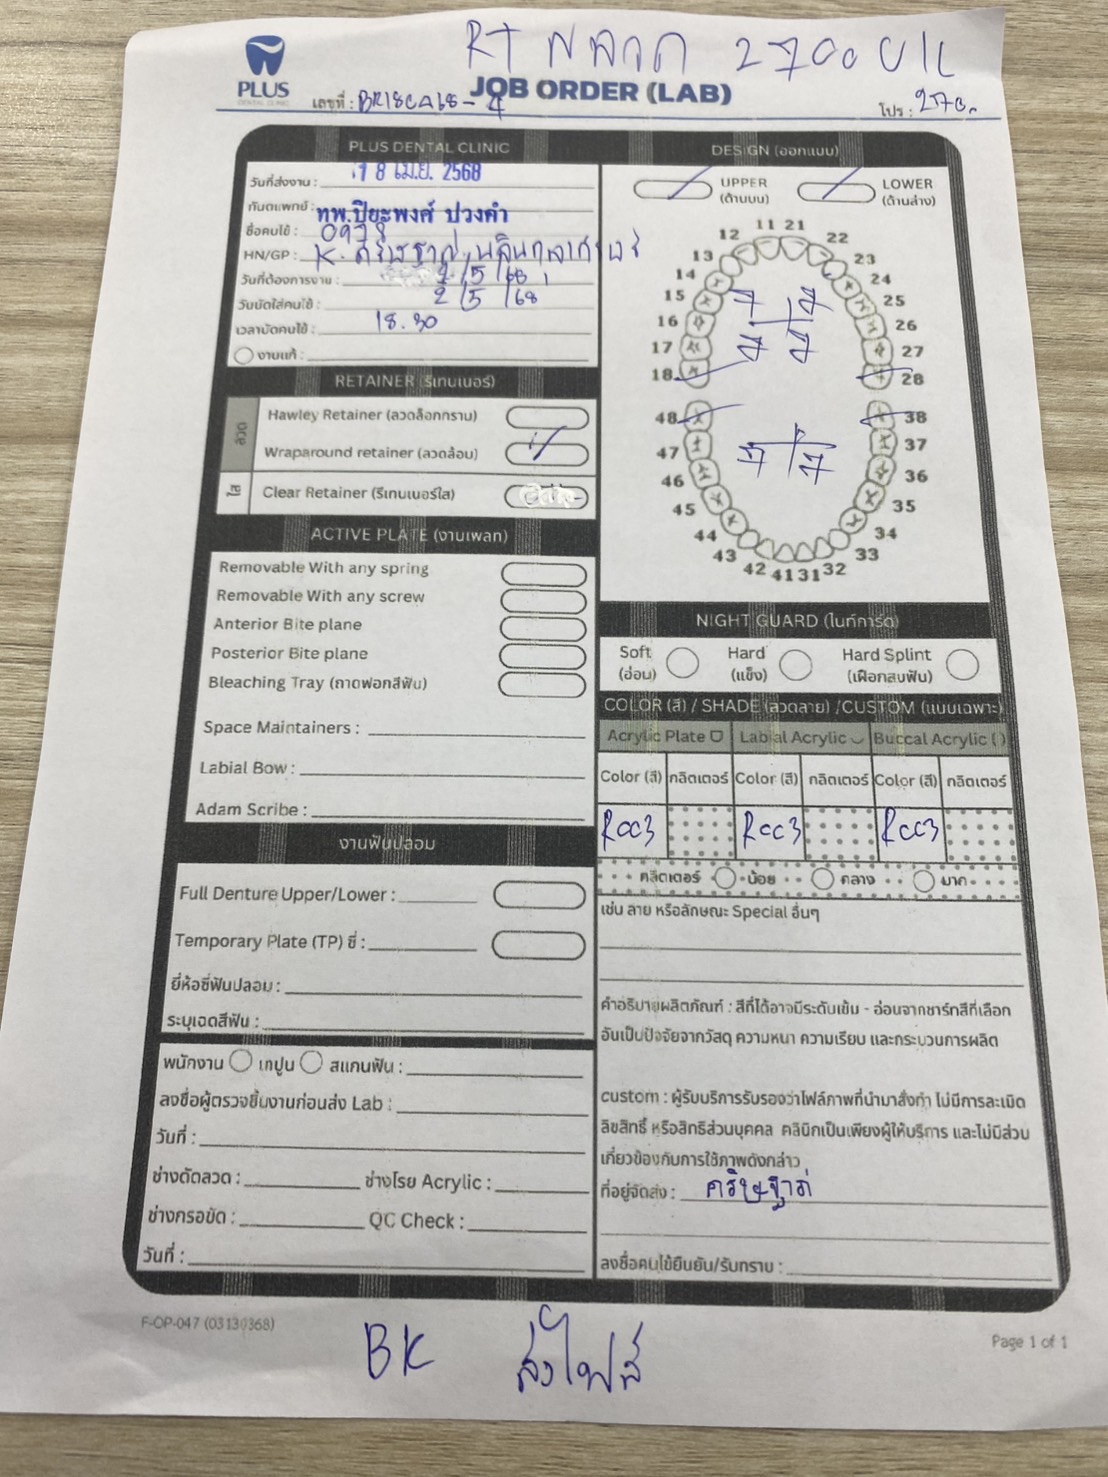 RT ลวด 2700 U/L
PLUS
DENTAL CLINIC
JOB ORDER (LAB)
เลขที่ :
โปร : 2700
PLUS DENTAL CLINIC
วันที่ส่งงาน : 18 เม.ย. 2568
ทันตแพทย์ : ทพ.ปิยะพงศ์ ปวงคำ
ชื่อคนไข้ : 0978
HN/GP : K.
วันที่ต้องการงาน : 2/5/68
วันนัดใส่คนไข้ : 2/5/68
เวลานัดคนไข้ : 18.30
งานแก้ :
RETAINER (รีเทนเนอร์)
ลวด
Hawley Retainer (ลวดล็อกกราม)
Wraparound retainer (ลวดล้อม)
ใส
Clear Retainer (รีเทนเนอร์ใส)
ACTIVE PLATE (งานเพลท)
Removable With any spring
Removable With any screw
Anterior Bite plane
Posterior Bite plane
Bleaching Tray (ถาดฟอกสีฟัน)
Space Maintainers :
Labial Bow :
Adam Scribe :
งานฟันปลอม
Full Denture Upper/Lower :
Temporary Plate (TP) ซี่ :
ยี่ห้อซี่ฟันปลอม :
ระบุเฉดสีฟัน :
พนักงาน เทปูน สแกนฟัน :
ลงชื่อผู้ตรวจชิ้นงานก่อนส่ง Lab :
วันที่ :
ช่างดัดลวด : ช่างโรย Acrylic :
ช่างกรอขัด : QC Check :
วันที่ :
DESIGN (ออกแบบ)
UPPER (ด้านบน)
LOWER (ด้านล่าง)
11 21
12 22
13 23
14 24
15 25
16 26
17 27
18 28
7 7
7 7
48 38
47 37
46 36
45 35
44 34
43 33
42 41 31 32
7 7
NIGHT GUARD (ไนท์การ์ด)
Soft (อ่อน)
Hard (แข็ง)
Hard Splint (เฝือกสบฟัน)
COLOR (สี) / SHADE (ลวดลาย) /CUSTOM (แบบเฉพาะ)
Acrylic Plate Labial Acrylic Buccal Acrylic ( )
Color (สี) กลิตเตอร์ Color (สี) กลิตเตอร์ Color (สี) กลิตเตอร์
Rcc3 Rcc3 Rcc3
กลิตเตอร์ น้อย กลาง มาก
เช่น ลาย หรือลักษณะ Special อื่นๆ
คำอธิบายผลิตภัณฑ์ : สีที่ได้อาจมีระดับเข้ม - อ่อนจากชาร์ทสีที่เลือก
อันเป็นปัจจัยจากวัสดุ ความหนา ความเรียบ และกระบวนการผลิต
custom : ผู้รับบริการรับรองว่าไฟล์ภาพที่นำมาสั่งทำ ไม่มีการละเมิด
ลิขสิทธิ์ หรือสิทธิส่วนบุคคล คลินิกเป็นเพียงผู้ให้บริการ และไม่มีส่วน
เกี่ยวข้องกับการใช้ภาพดังกล่าว
ที่อยู่จัดส่ง :
ลงชื่อคนไข้ยืนยัน/รับทราบ :
F-OP-047 (03130368)
Page 1 of 1
BK ส่งไฟล์